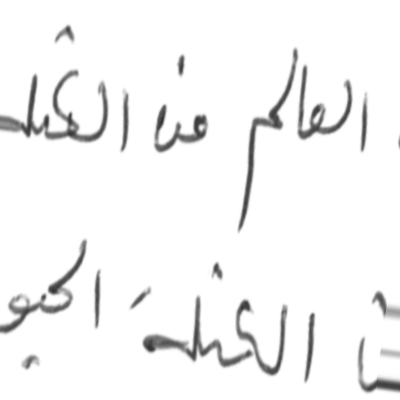 العالم من الكتلة
الكتلة الحيو